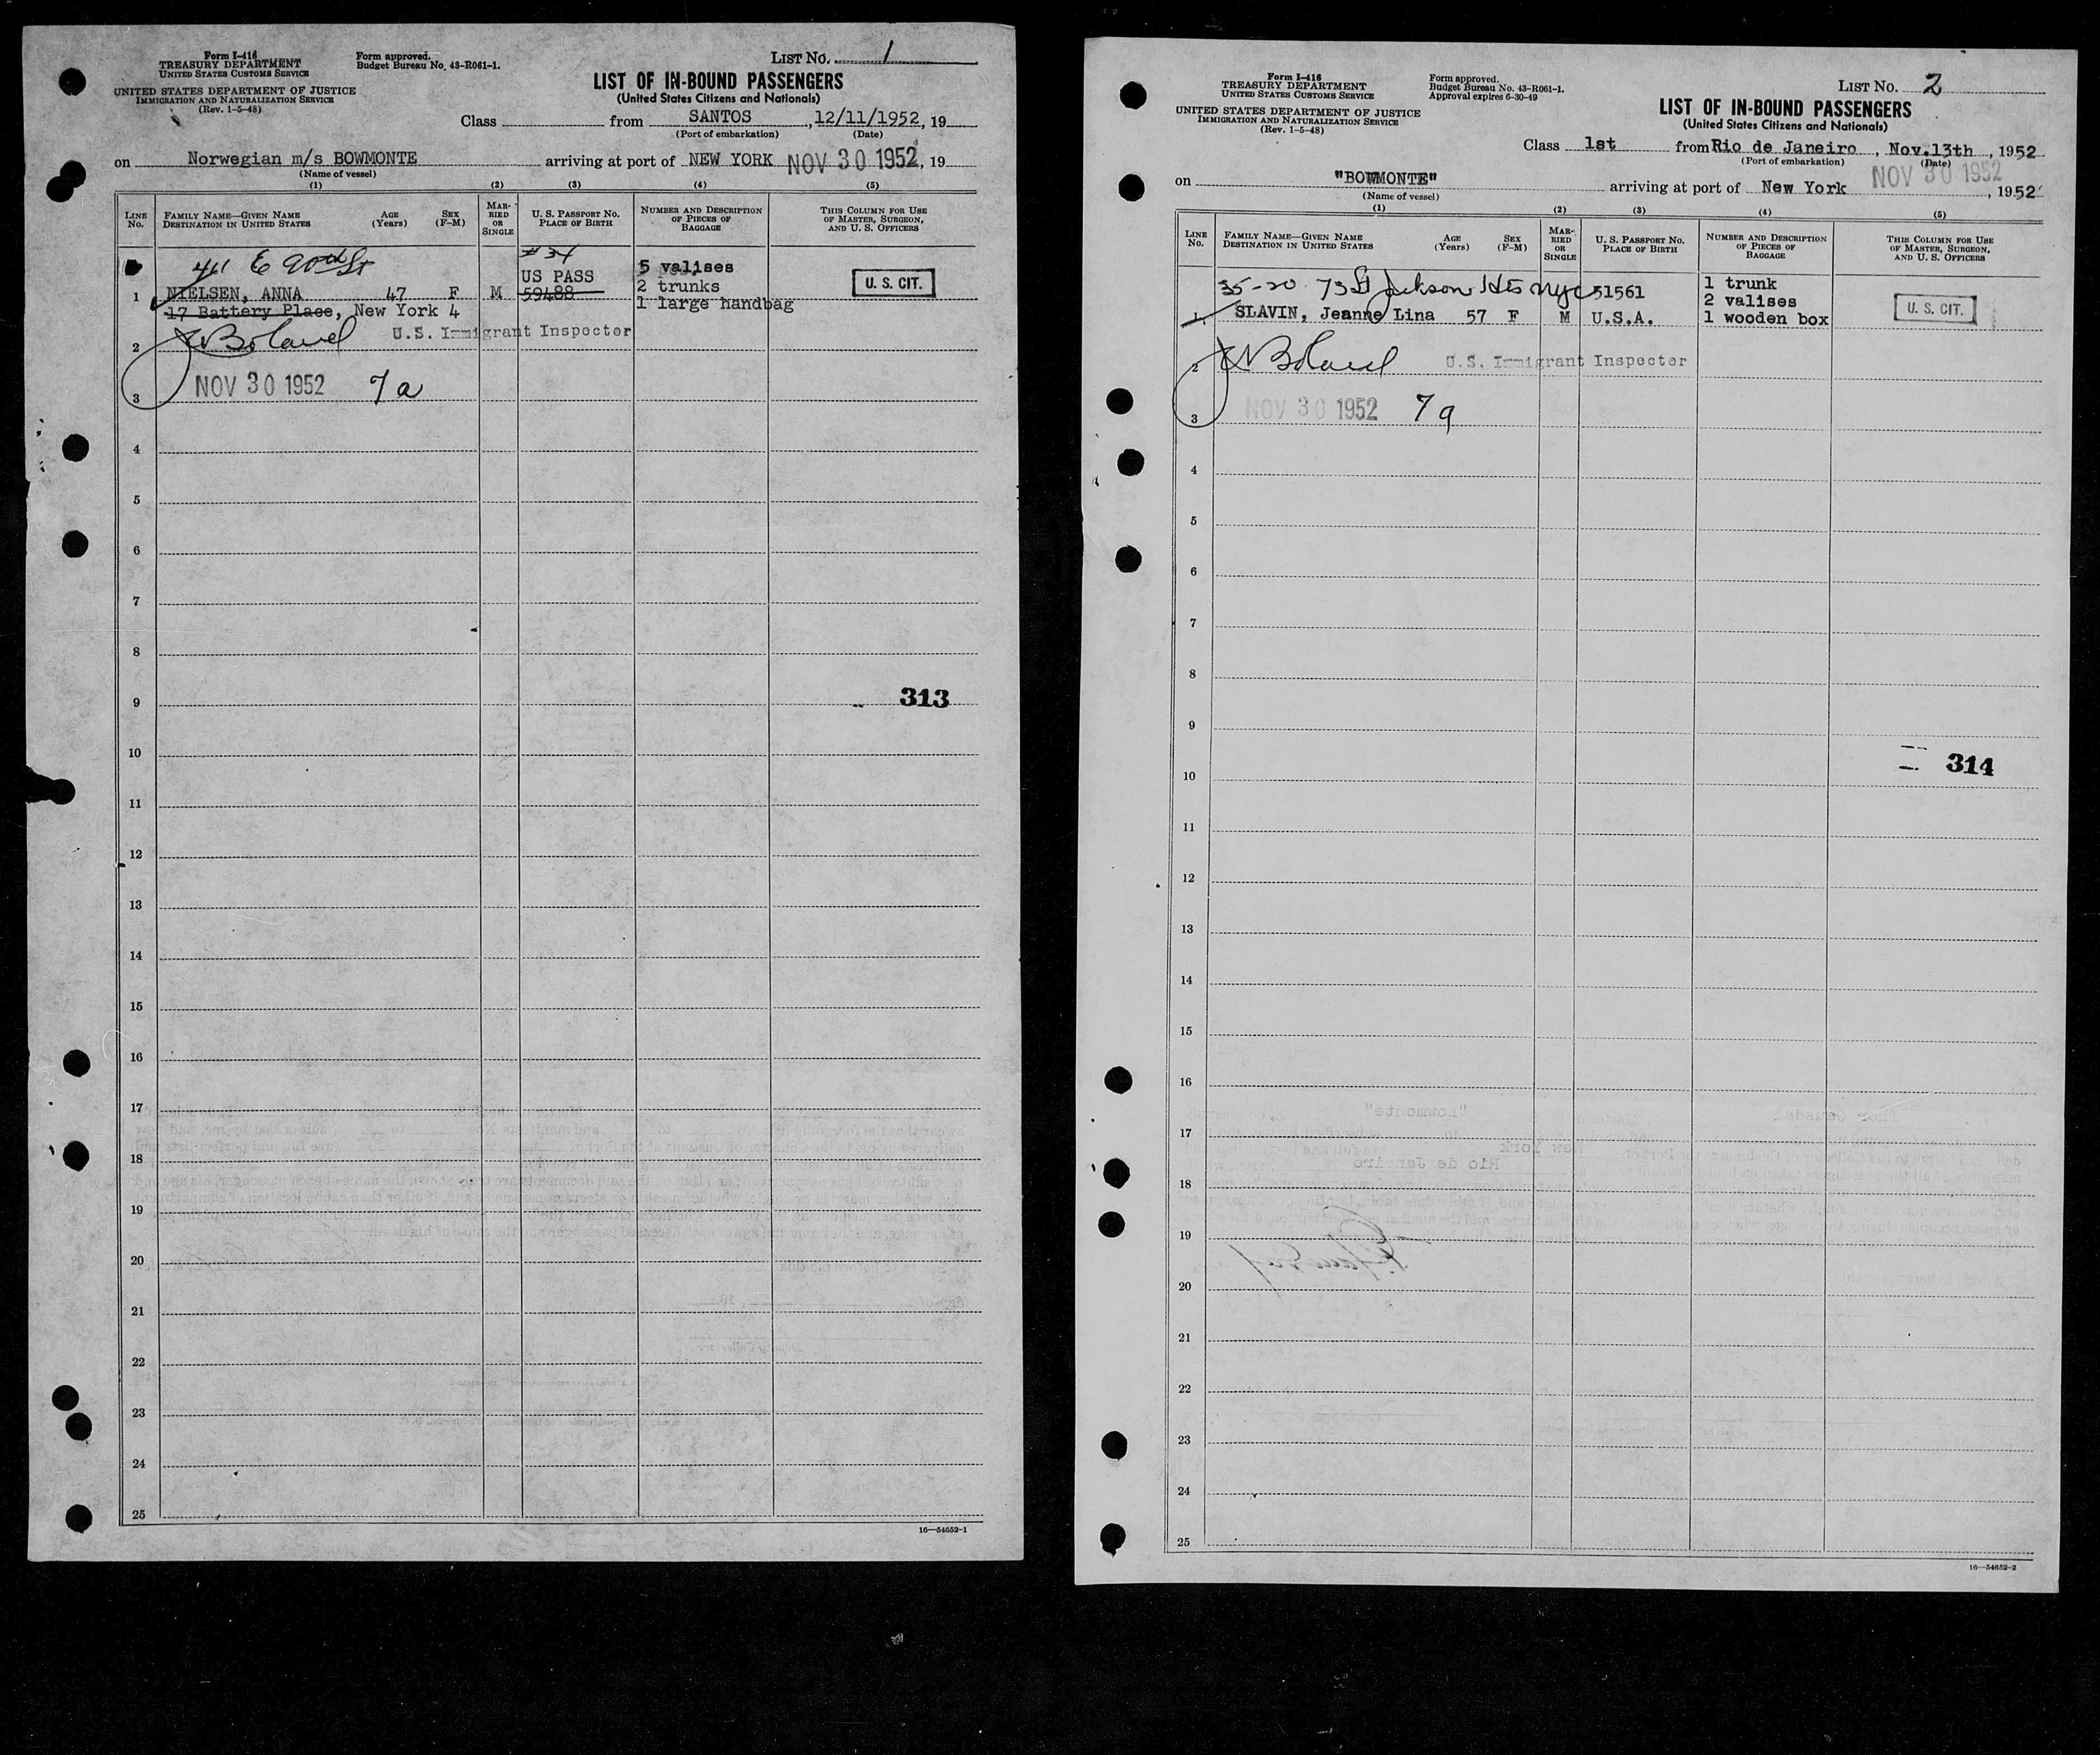 Form I-416
TREASURY DEPARTMENT
UNITED STATES CUSTOMS SERVICE
UNITED STATES DEPARTMENT OF JUSTICE
IMMIGRATION AND NATURALIZATION SERVICE
(Rev. 1-5-48)
Form approved.
Budget Bureau No. 43-R061-1.
LIST NO. 1
LIST OF IN-BOUND PASSENGERS
(United States Citizens and Nationals)
Class from SANTOS, 12/11/1952, 19
(Port of embarkation) (Date)
on Norwegian m/s BOWMONTE arriving at port of NEW YORK NOV 30 1952, 19
(Name of vessel)
(1) (2) (3) (4) (5)
LINE No. FAMILY NAME—GIVEN NAME DESTINATION IN UNITED STATES AGE (Years) SEX (F-M) MARRIED OR SINGLE U. S. PASSPORT NO. PLACE OF BIRTH NUMBER AND DESCRIPTION OF PIECES OF BAGGAGE THIS COLUMN FOR USE OF MASTER, SURGEON, AND U. S. OFFICERS
#34
E 90th St
US PASS 5 valises
1 NIELSEN, ANNA 47 F M 59488 2 trunks U. S. CIT.
17 Battery Place, New York 4 1 large handbag
2 Boland U.S. Immigrant Inspector
3 NOV 30 1952 7a
4
5
6
7
8
9 313
10
11
12
13
14
15
16
17
18
19
20
21
22
23
24
25
16—54652-1
Form I-416
TREASURY DEPARTMENT
UNITED STATES CUSTOMS SERVICE
UNITED STATES DEPARTMENT OF JUSTICE
IMMIGRATION AND NATURALIZATION SERVICE
(Rev. 1-5-48)
Form approved.
Budget Bureau No. 43-R061-1.
Approval expires 6-30-49
LIST NO. 2
LIST OF IN-BOUND PASSENGERS
(United States Citizens and Nationals)
Class 1st from Rio de Janeiro, Nov.13th, 1952
(Port of embarkation) (Date)
on "BOWMONTE" arriving at port of New York NOV 30 1952, 1952
(Name of vessel)
(1) (2) (3) (4) (5)
LINE No. FAMILY NAME—GIVEN NAME DESTINATION IN UNITED STATES AGE (Years) SEX (F-M) MARRIED OR SINGLE U. S. PASSPORT NO. PLACE OF BIRTH NUMBER AND DESCRIPTION OF PIECES OF BAGGAGE THIS COLUMN FOR USE OF MASTER, SURGEON, AND U. S. OFFICERS
35-20 73 St Jackson Hts nyc 51561 1 trunk
2 valises U. S. CIT.
1 SLAVIN, Jeanne Lina 57 F M U.S.A. 1 wooden box
2 Boland U.S. Immigrant Inspector
3 NOV 30 1952 7a
4
5
6
7
8
9
10 314
11
12
13
14
15
16
17
18
19
20
21
22
23
24
25
16—54652-2